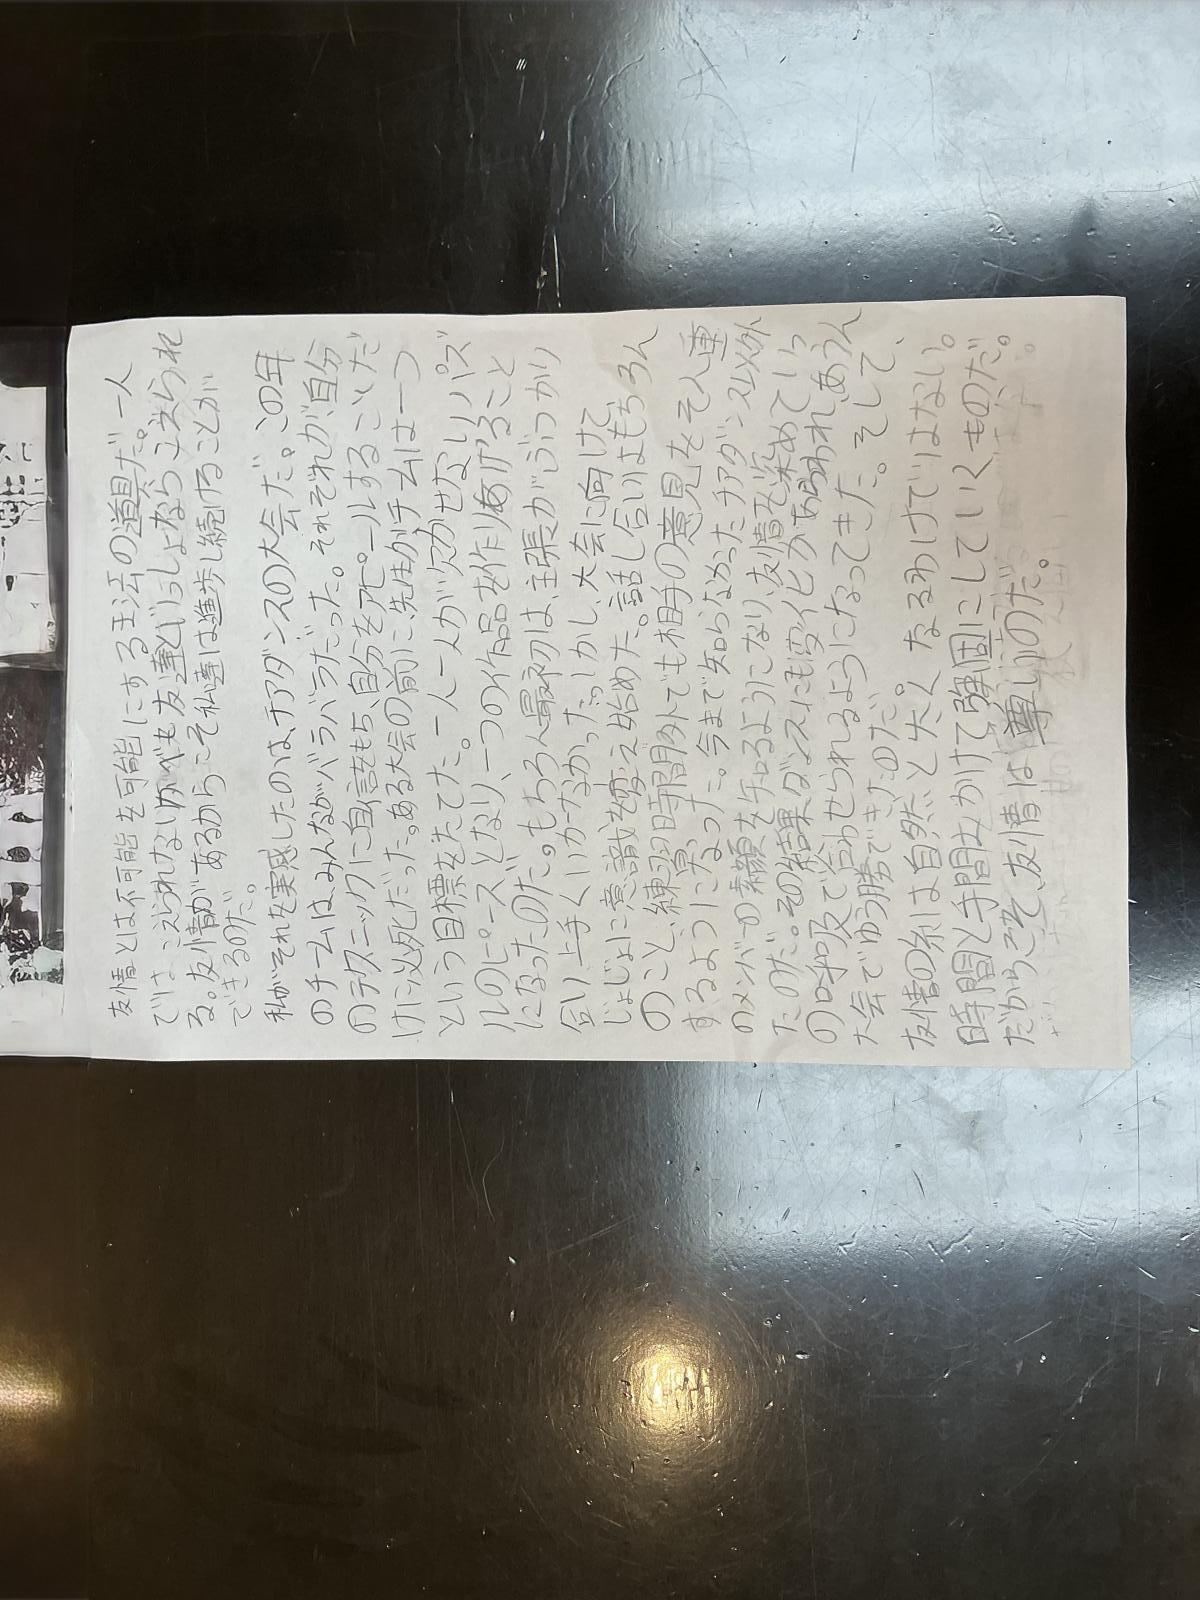 友情とは不可能を可能にする玉法の道具だ。一人
では、こえられないかべも友達といっしょならこえられ
る。友情があるからこそ私達は進歩し続けることが
できるのだ。
私がそれを実感したのは、チアダンスの大会だ。この年
のチームは、みんながバラバラだった。それぞれが、自分
のテクニックに自信をもち、自分をアピールすることだ
けに必死だった。ある大会の前に、先生がチームは一つ
という目標をたてた。一人一人が欠かせないパズ
ルのピースとなり、一つの作品を作りあげること
になったのだ。もちろん最初は、主張がぶつかり
合い、上手くいかなかった。しかし、大会に向けて
じょじょに意識を変え始めた。話し合いはもちろん
のこと、練習時間外でも相手の意見をそん重
するようになった。今まで知らなかったチアダンス以外
のメンバーの素顔を知るようになり、友情を深めていっ
たのだ。その結果、ダンスにも変化があらわれ、あうん
の呼吸で合わせられるようになってきた。そして、
大会でゆう勝できたのだ。
友情の糸は自然と太く なるわけではない。
時間と手間をかけて強固にしていくものだ。
だからこそ、友情は尊いのだ。